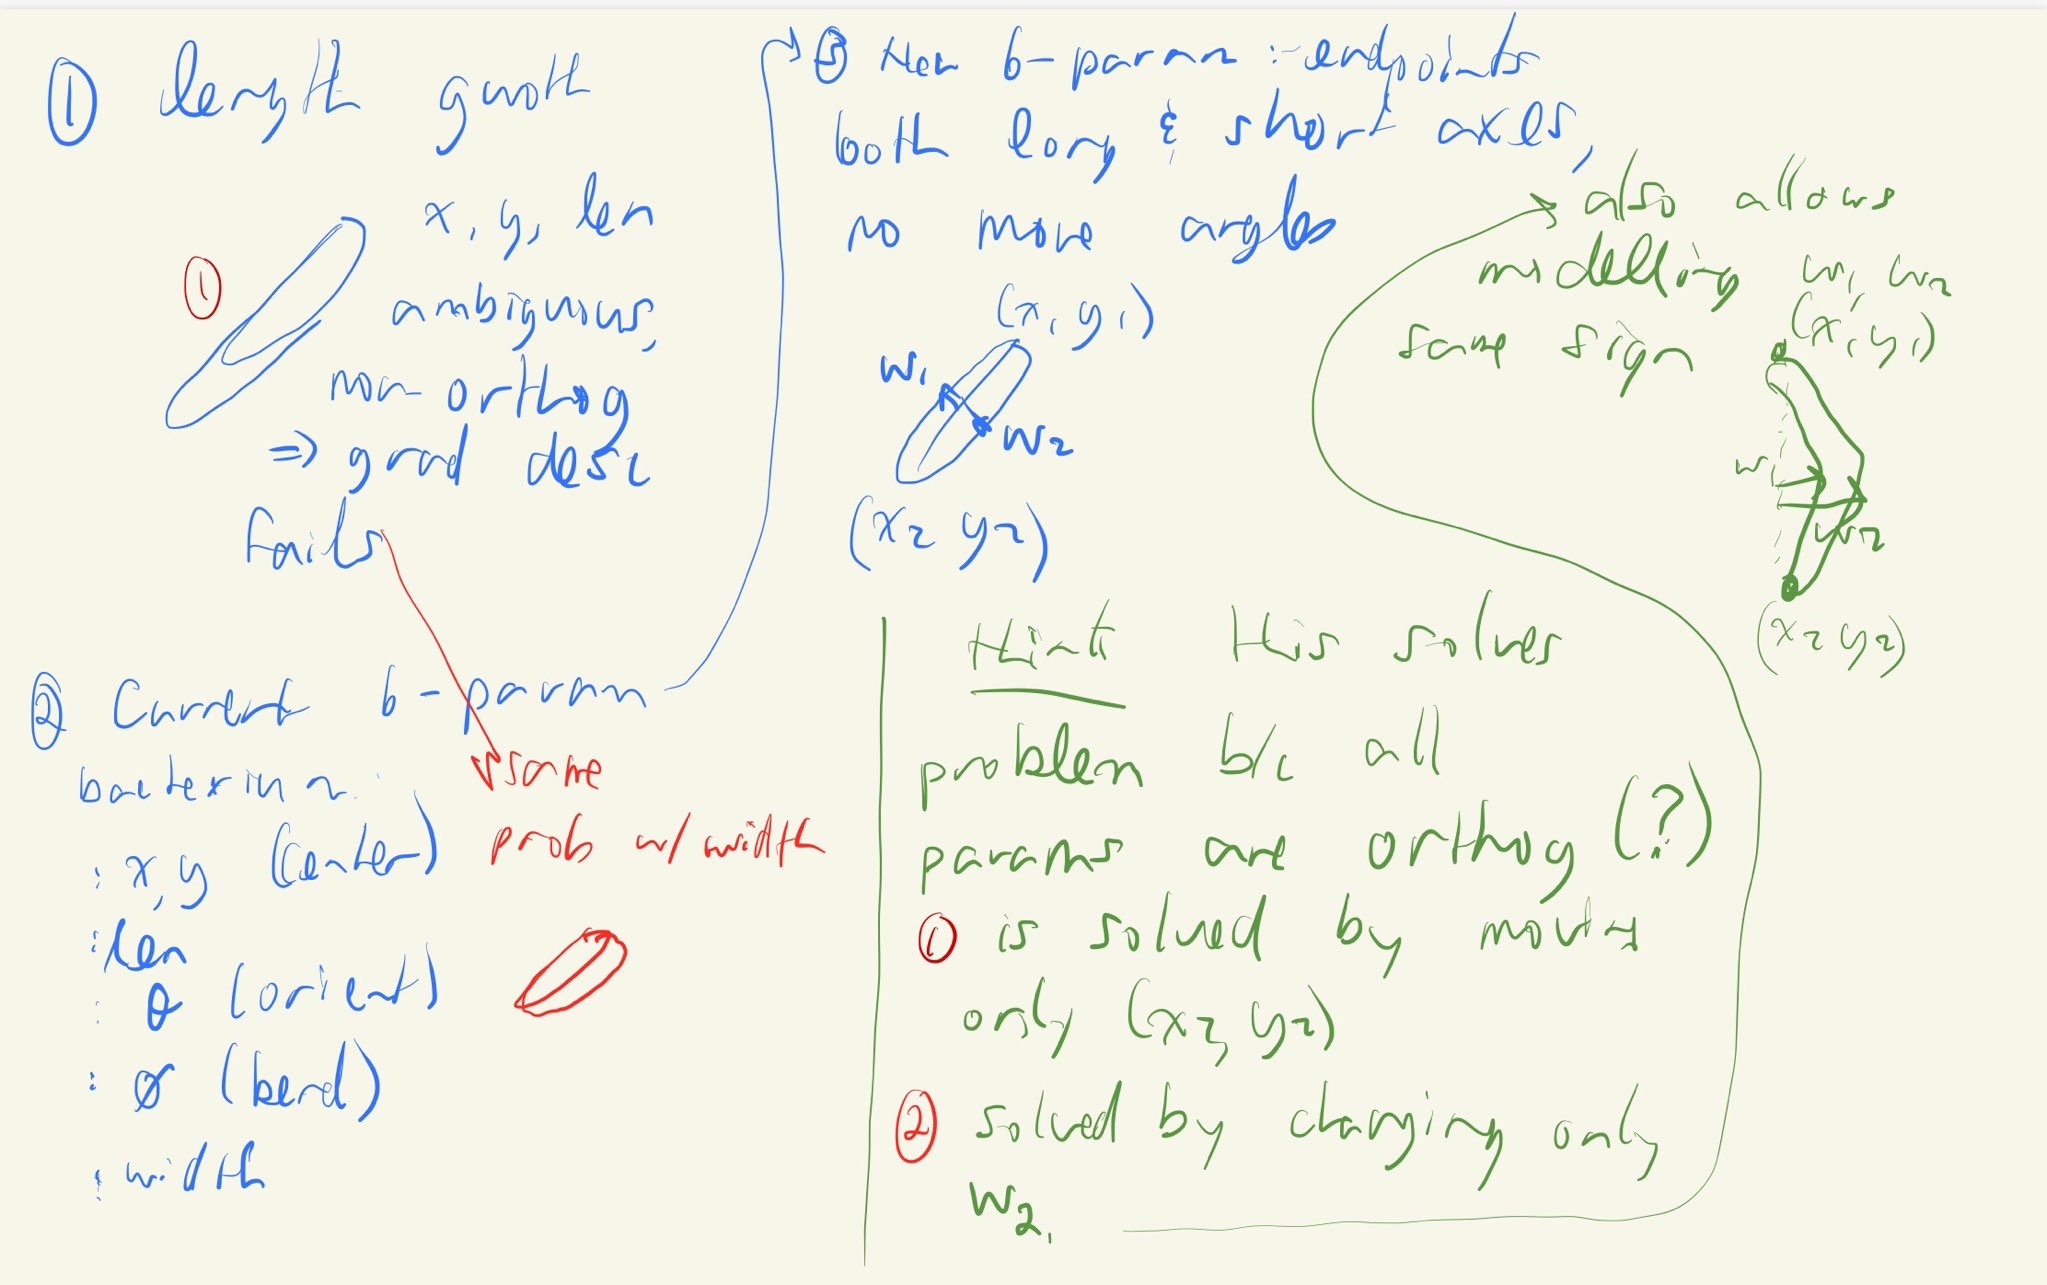 ① length growth
x, y, len
①
ambiguous,
non-orthog
⇒ grad desc
fails
② Current 6-param
bacterium:
same
prob w/ width
: x,y (center)
: len
: θ (orient)
: ø (bend)
: width
③ New 6-param :- endpoints
both long & short axes,
no more angles
(x1 y1)
w1
w2
(x2 y2)
also allows
modelling w1, w2
same sign
(x1, y1)
w1
w2
(x2 y2)
this solves
problem b/c all
params are orthog (?)
① is solved by moving
only (x2, y2)
② solved by changing only
w2.